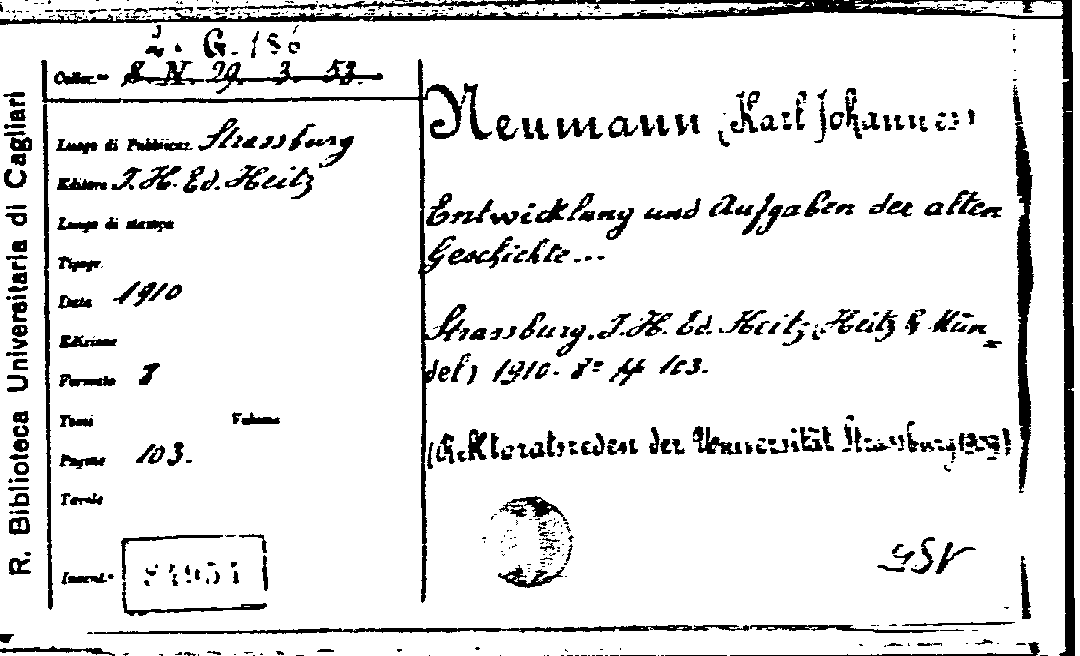 R. Biblioteca Universitaria di Cagliari
2. G. 186
Colloc.ne S. N. 29. 3. 53.
Luogo di Pubblicaz. Strassburg
Editore J. H. Ed. Heitz
Luogo di stampa
Tipogr.
Data 1910
Edizione
Formato 8
Tomi Volume
Pagine 103.
Tavole
Invent.°
Neumann (Karl Johannes)
Entwicklung und Aufgaben der alten
Geschichte...
Strassburg. J. H. Ed. Heitz (Heitz & Mün=
del) 1910. 8° pp 103.
(Rektoratsreden der Universität Strassburg 1909)